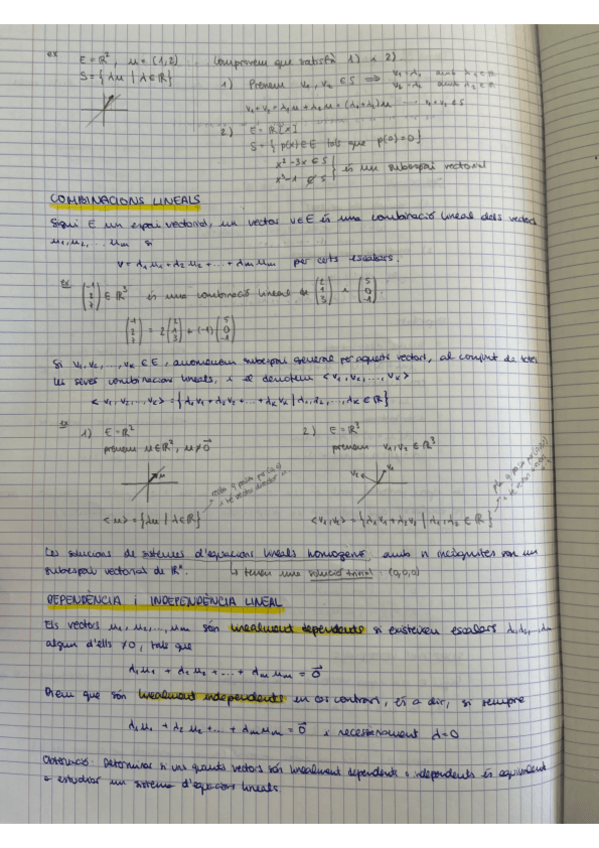 ex E = ℝ², u = (1,2). Comprovem que satisfà 1) i 2).
S = { λu | λ∈ℝ }
1) Prenem v₁, v₂ ∈ S ⟹ v₁ = λ₁ amb λ₁ ∈ ℝ
v₂ = λ₂ amb λ₂ ∈ ℝ
v₁ + v₂ = λ₁u + λ₂u = (λ₁+λ₂)u v₁+v₂ ∈ S
2) E = ℝ[x]
S = { p(x) ∈ E tals que p(0) = 0 }
x² - 3x ∈ S
x³ - 1 ∉ S } és un subespai vectorial
COMBINACIONS LINEALS
Sigui E un espai vectorial, un vector v∈E és una combinació lineal dels vectors
u₁, u₂, ..., uₘ si
v = λ₁u₁ + λ₂u₂ + ... + λₘuₘ per certs escalars.
ex (-1 2 7) ∈ ℝ³ és una combinació lineal de (2 1 3) i (5 0 -1).
(-1 2 7) = 2 (2 1 3) + (-1) (5 0 -1)
Si v₁, v₂, ..., vₖ ∈ E, anomenem subespai generat per aquests vectors, al conjunt de totes
les seves combinacions lineals, i es denoten <v₁, v₂, ..., vₖ>
<v₁, v₂, ..., vₖ> = { λ₁v₁ + λ₂v₂ + ... + λₖvₖ | λ₁, λ₂, ..., λₖ ∈ ℝ }
ex 1) E = ℝ² 2) E = ℝ³
prenem u∈ℝ², u≠0⃗ prenem v₁, v₂ ∈ ℝ³
u v₂ v₁
recta q passa per (0,0) i té vector director u
pla q passa per (0,0,0)
<u> = { λu | λ∈ℝ } <v₁, v₂> = { λ₁v₁ + λ₂v₂ | λ₁, λ₂ ∈ ℝ }
Les solucions de sistemes d'equacions lineals homogenis, amb n incògnites són un
subespai vectorial de ℝⁿ. ↳ tenen una solució trivial (0,0,0)
DEPENDÈNCIA i INDEPENDÈNCIA LINEAL
Els vectors u₁, u₂, ..., uₘ són linealment dependents si existeixen escalars λ₁, λ₂, ..., λₘ
algun d'ells ≠0, tals que
λ₁u₁ + λ₂u₂ + ... + λₘuₘ = 0⃗
Diem que són linealment independents en cas contrari, és a dir, si sempre
λ₁u₁ + λ₂u₂ + ... + λₘuₘ = 0⃗ necessàriament λ=0
Observació: Determinar si uns quants vectors són linealment dependents o independents és equivalent
a estudiar un sistema d'equacions lineals.